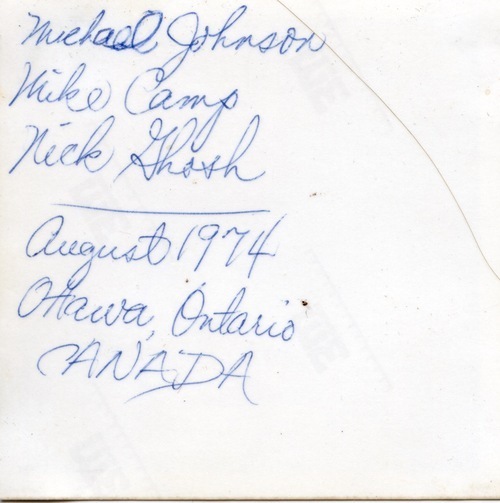 Michael Johnson
Mike Camp
Nick Ghosh
August 1974
Ottawa, Ontario
CANADA